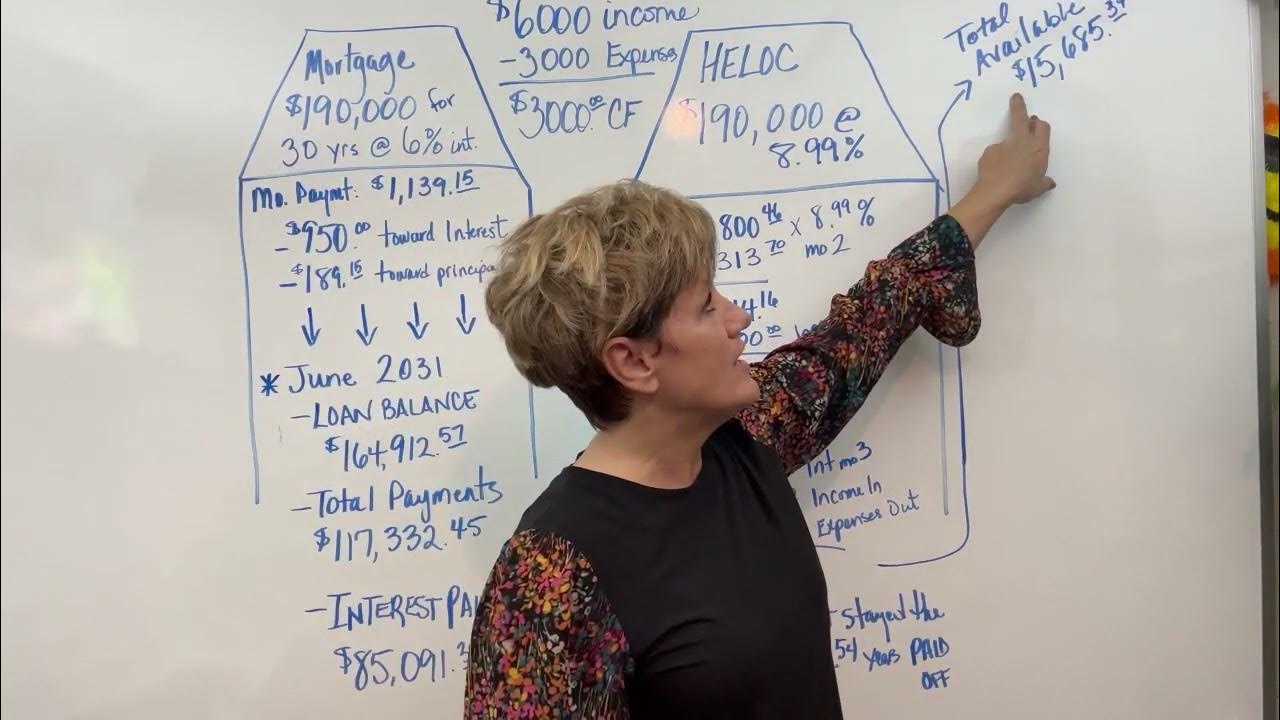 $6000 income
-3000 Expenses
$3000.00 CF
Mortgage
$190,000 for
30 yrs @ 6% int.
Mo. Paymt: $1,139.15
-$950.00 toward Interest
-$189.15 toward principa
* June 2031
-LOAN BALANCE
$164,912.57
-Total Payments
$117,332.45
-INTEREST PA
$85,091.
HELOC
$190,000 @
8.99%
800.46 x 8.99%
313.70 mo 2
4.16
00.00
Int mo3
Income In
Expenses Out
stayed the
.54 years PAID
OFF
Total
Available
$15,685.34